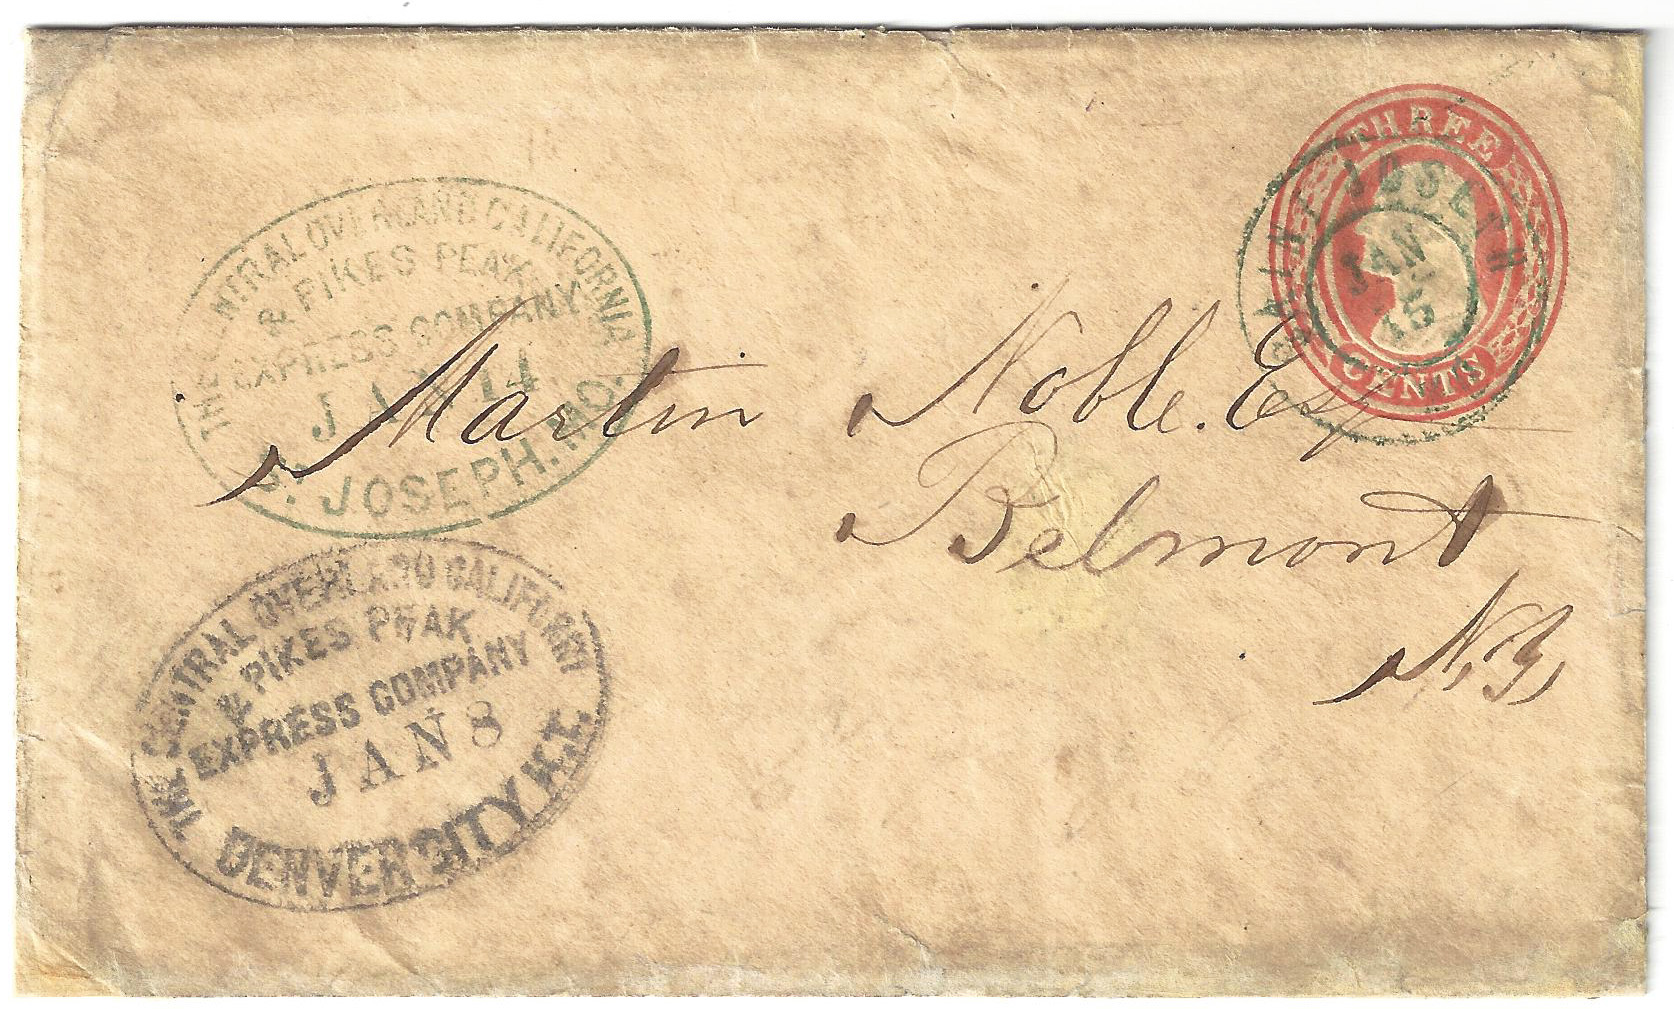 THE CENTRAL OVERLAND CALIFORNIA
& PIKES PEAK
EXPRESS COMPANY
JAN 14
ST. JOSEPH. MO.
THREE
CENTS
SAINT JOSEPH
JAN
15
Martin Noble. Esq
Belmont
N.Y,
THE CENTRAL OVERLAND CALIFORNIA
& PIKES PEAK
EXPRESS COMPANY
JAN 8
DENVER CITY, K.T.